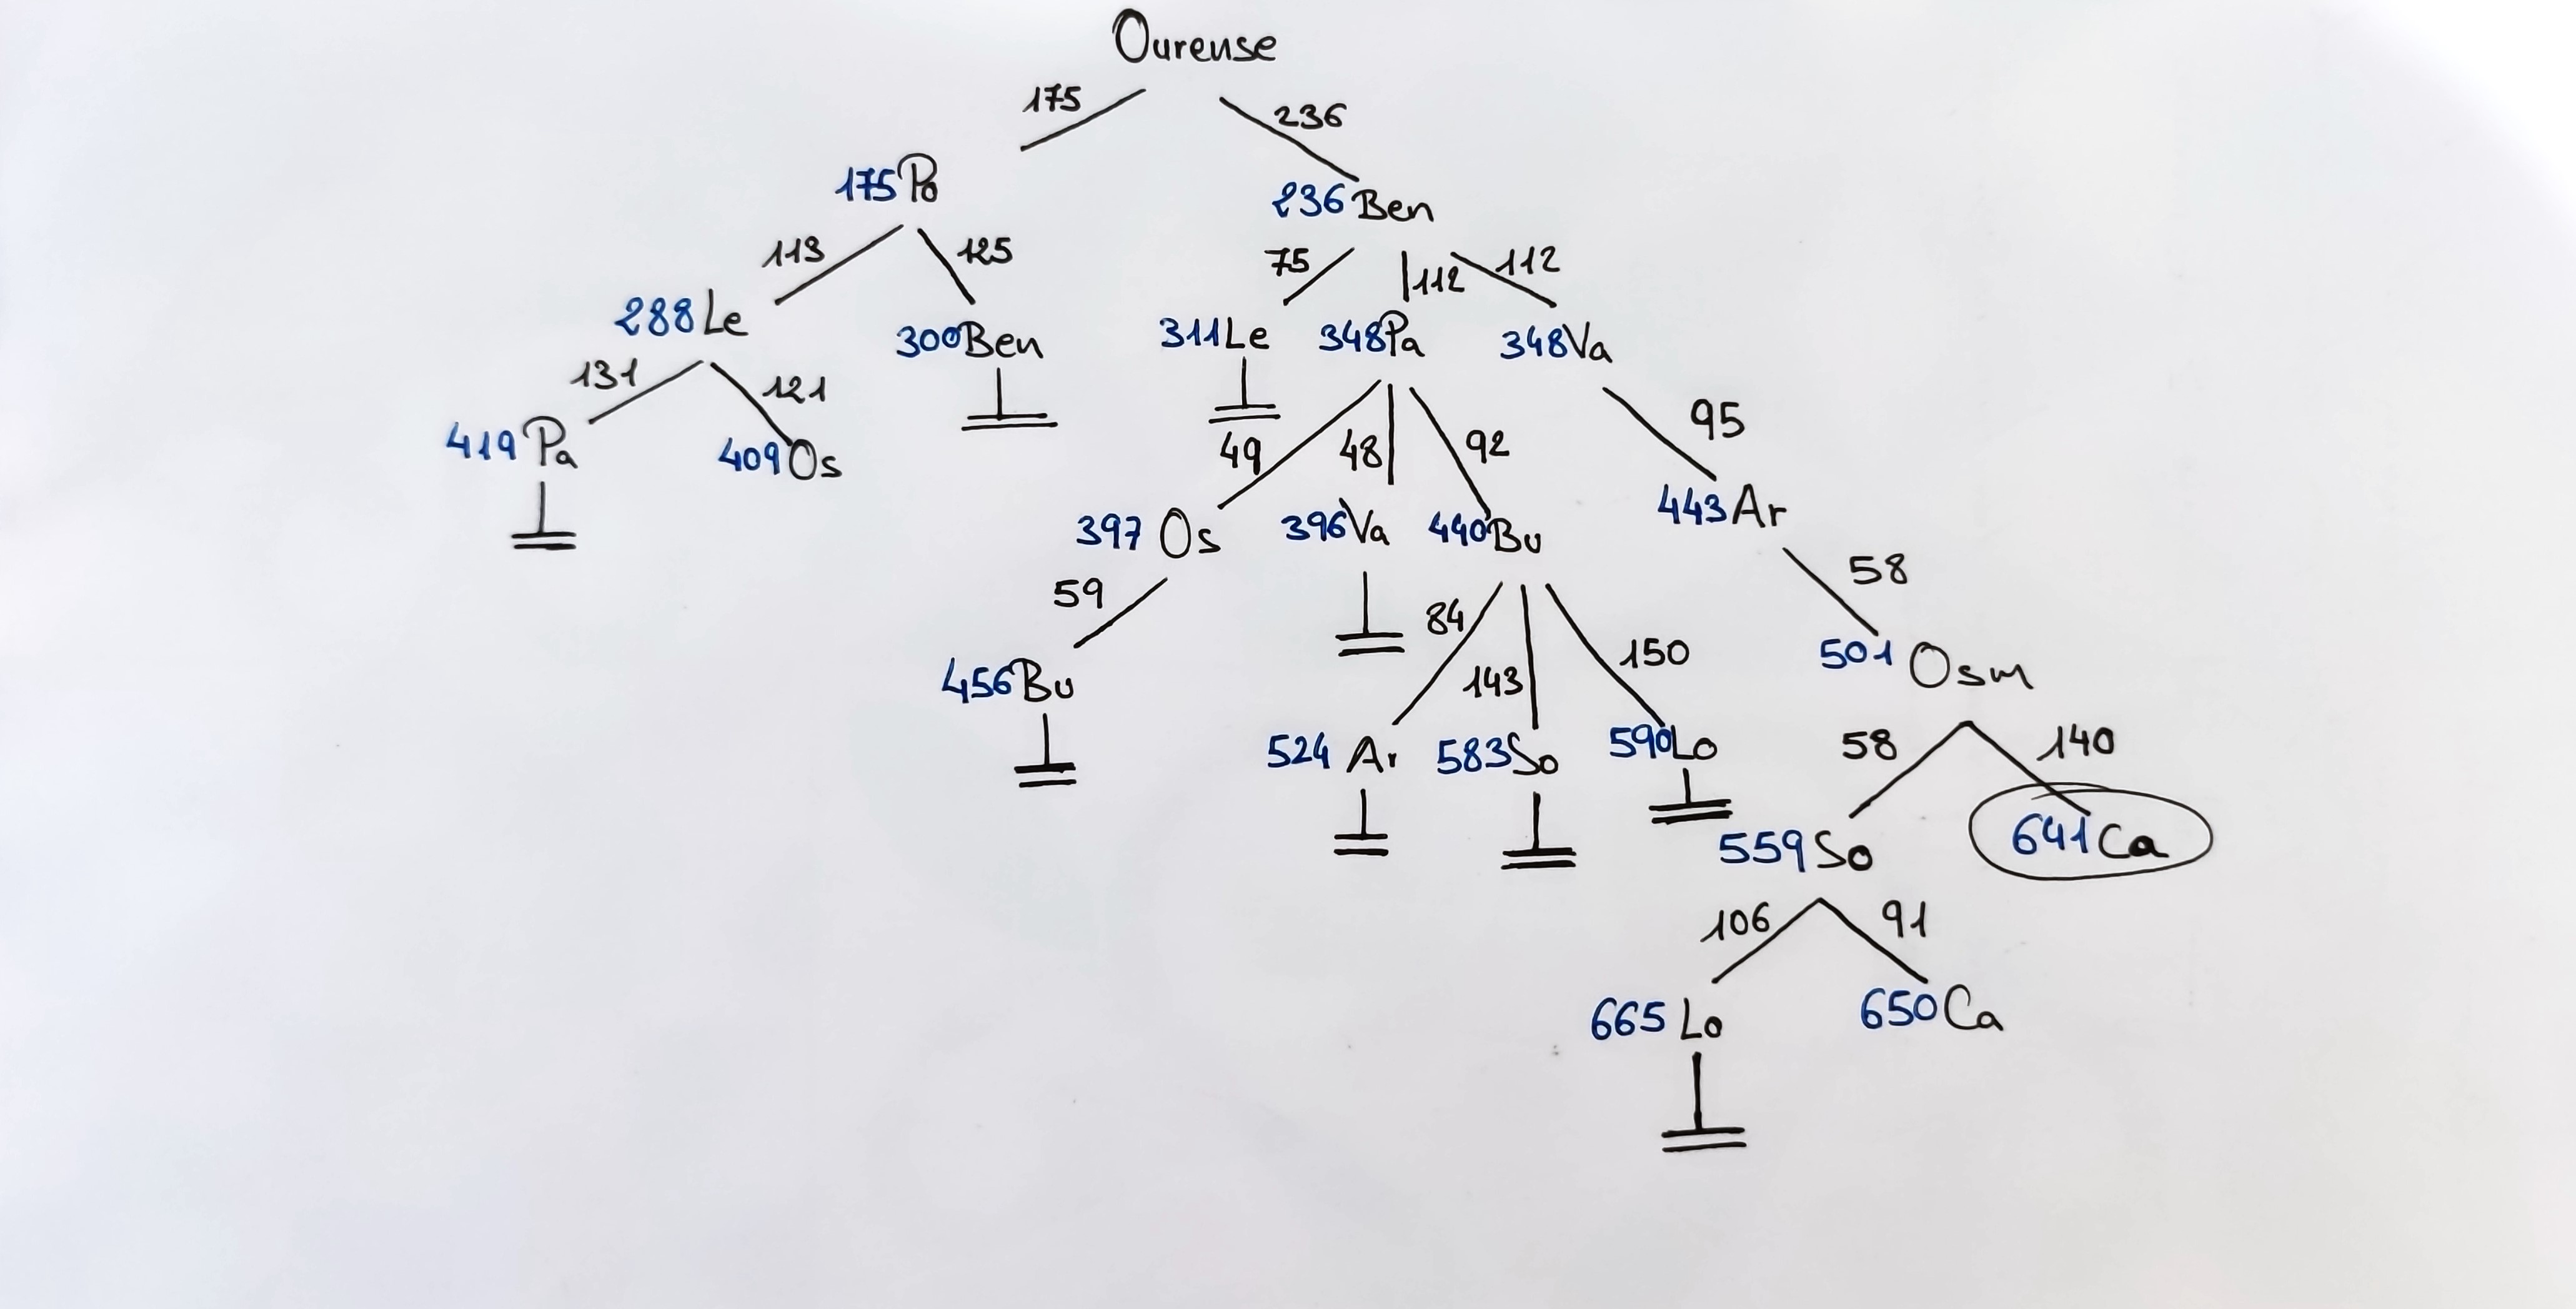 Ourense
175 236
175 Po 236 Ben
113 125 75 112 112
288 Le 300 Ben 311 Le 348 Pa 348 Va
131 121 49 48 92 95
419 Pa 409 Os
397 Os 396 Va 440 Bu 443 Ar
59 84 143 150 58
456 Bu 501 Osm
524 Ar 583 So 590 Lo 58 140
559 So 641 Ca
106 91
665 Lo 650 Ca